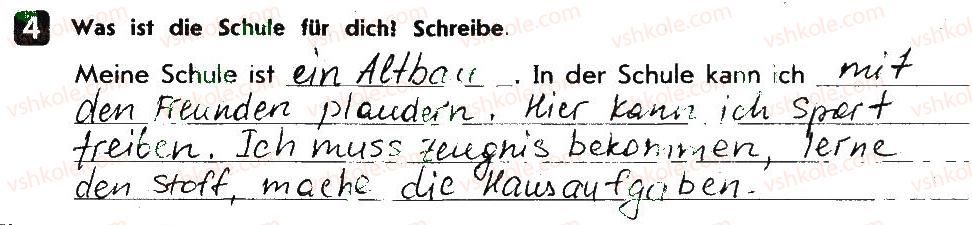 4 Was ist die Schule für dich? Schreibe.
Meine Schule ist ein Altbau. In der Schule kann ich mit
den Freunden plaudern. Hier kann ich Sport
treiben. Ich muss Zeugnis bekommen, lerne
den Stoff, mache die Hausaufgaben.